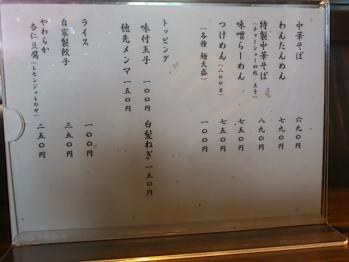 中華そば 六九〇円
わんたんめん 七九〇円
特製中華そば 八九〇円
味噌らーめん 七五〇円
つけめん 七五〇円
（各種 麺大盛） 一〇〇円
トッピング
味付玉子 一〇〇円 白髪ねぎ 一五〇円
穂先メンマ 一五〇円
ライス 一〇〇円
自家製餃子 三五〇円
やわらか
杏仁豆腐 二五〇円